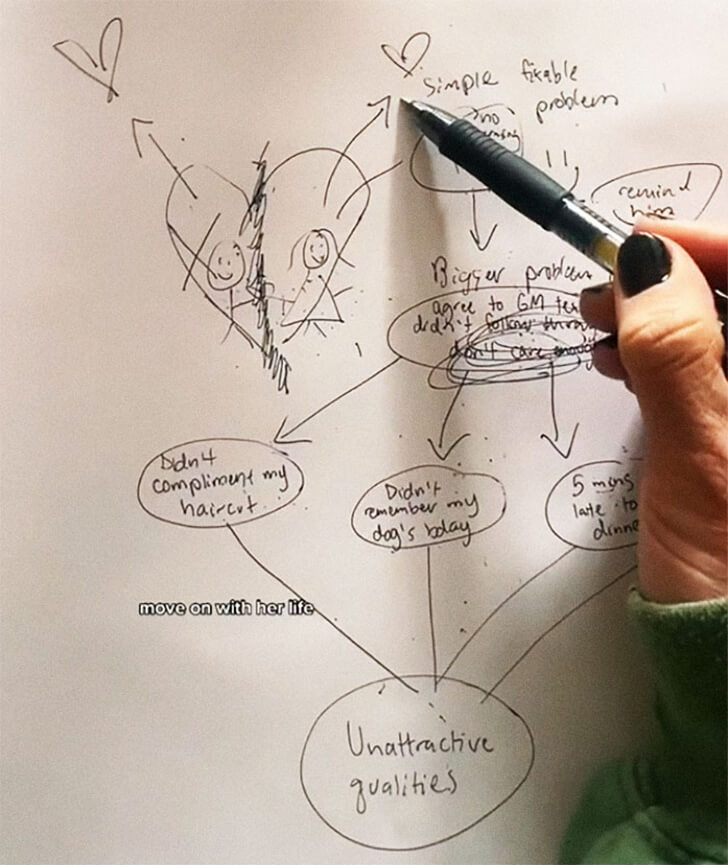 simple fixable
problem
no
remind
him
Bigger problem
agree to GM
didn't follow
don't care enough
Didn't
compliment my
haircut
Didn't
remember my
dog's bday
5 mins
late to
dinne
move on with her life
Unattractive
qualities